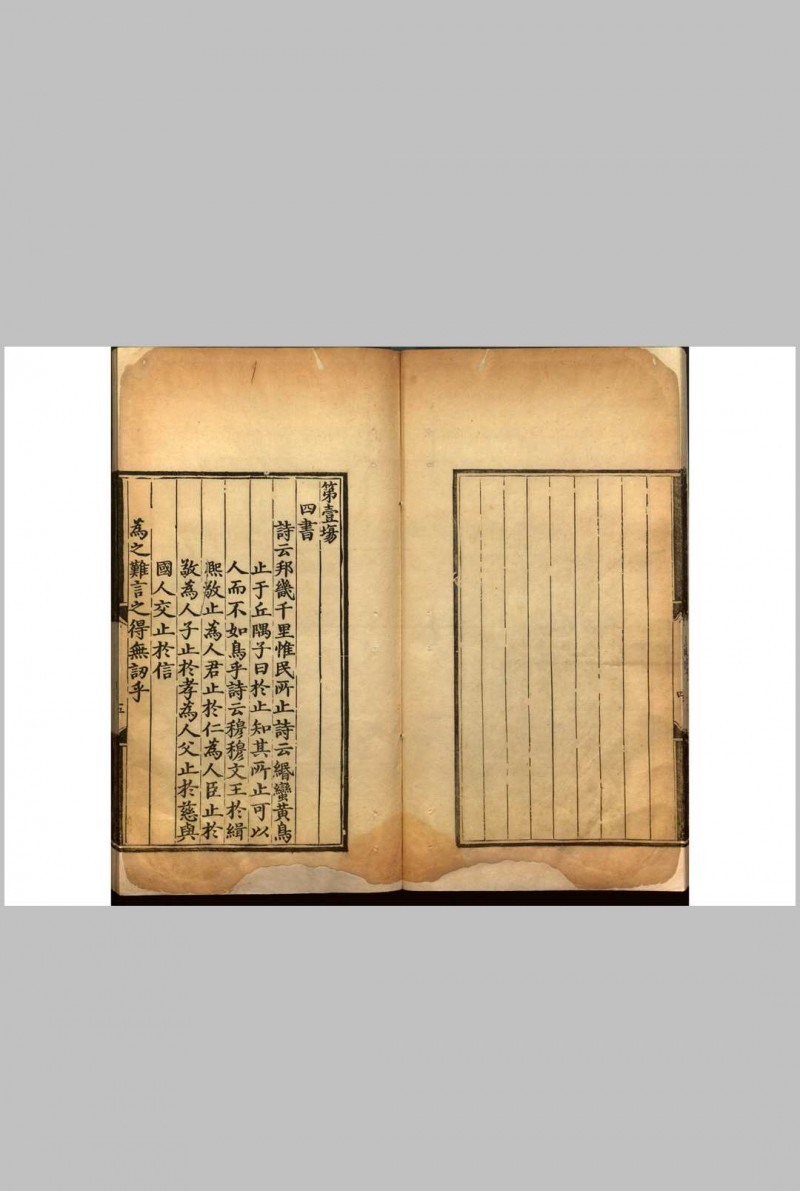 第壹塲
四書
詩云邦畿千里惟民所止詩云緡蠻黃鳥
止于丘隅子曰於止知其所止可以
人而不如鳥乎詩云穆穆文王於緝
熈敬止為人君止於仁為人臣止於
敬為人子止於孝為人父止於慈與
國人交止於信
為之難言之得無訒乎
五